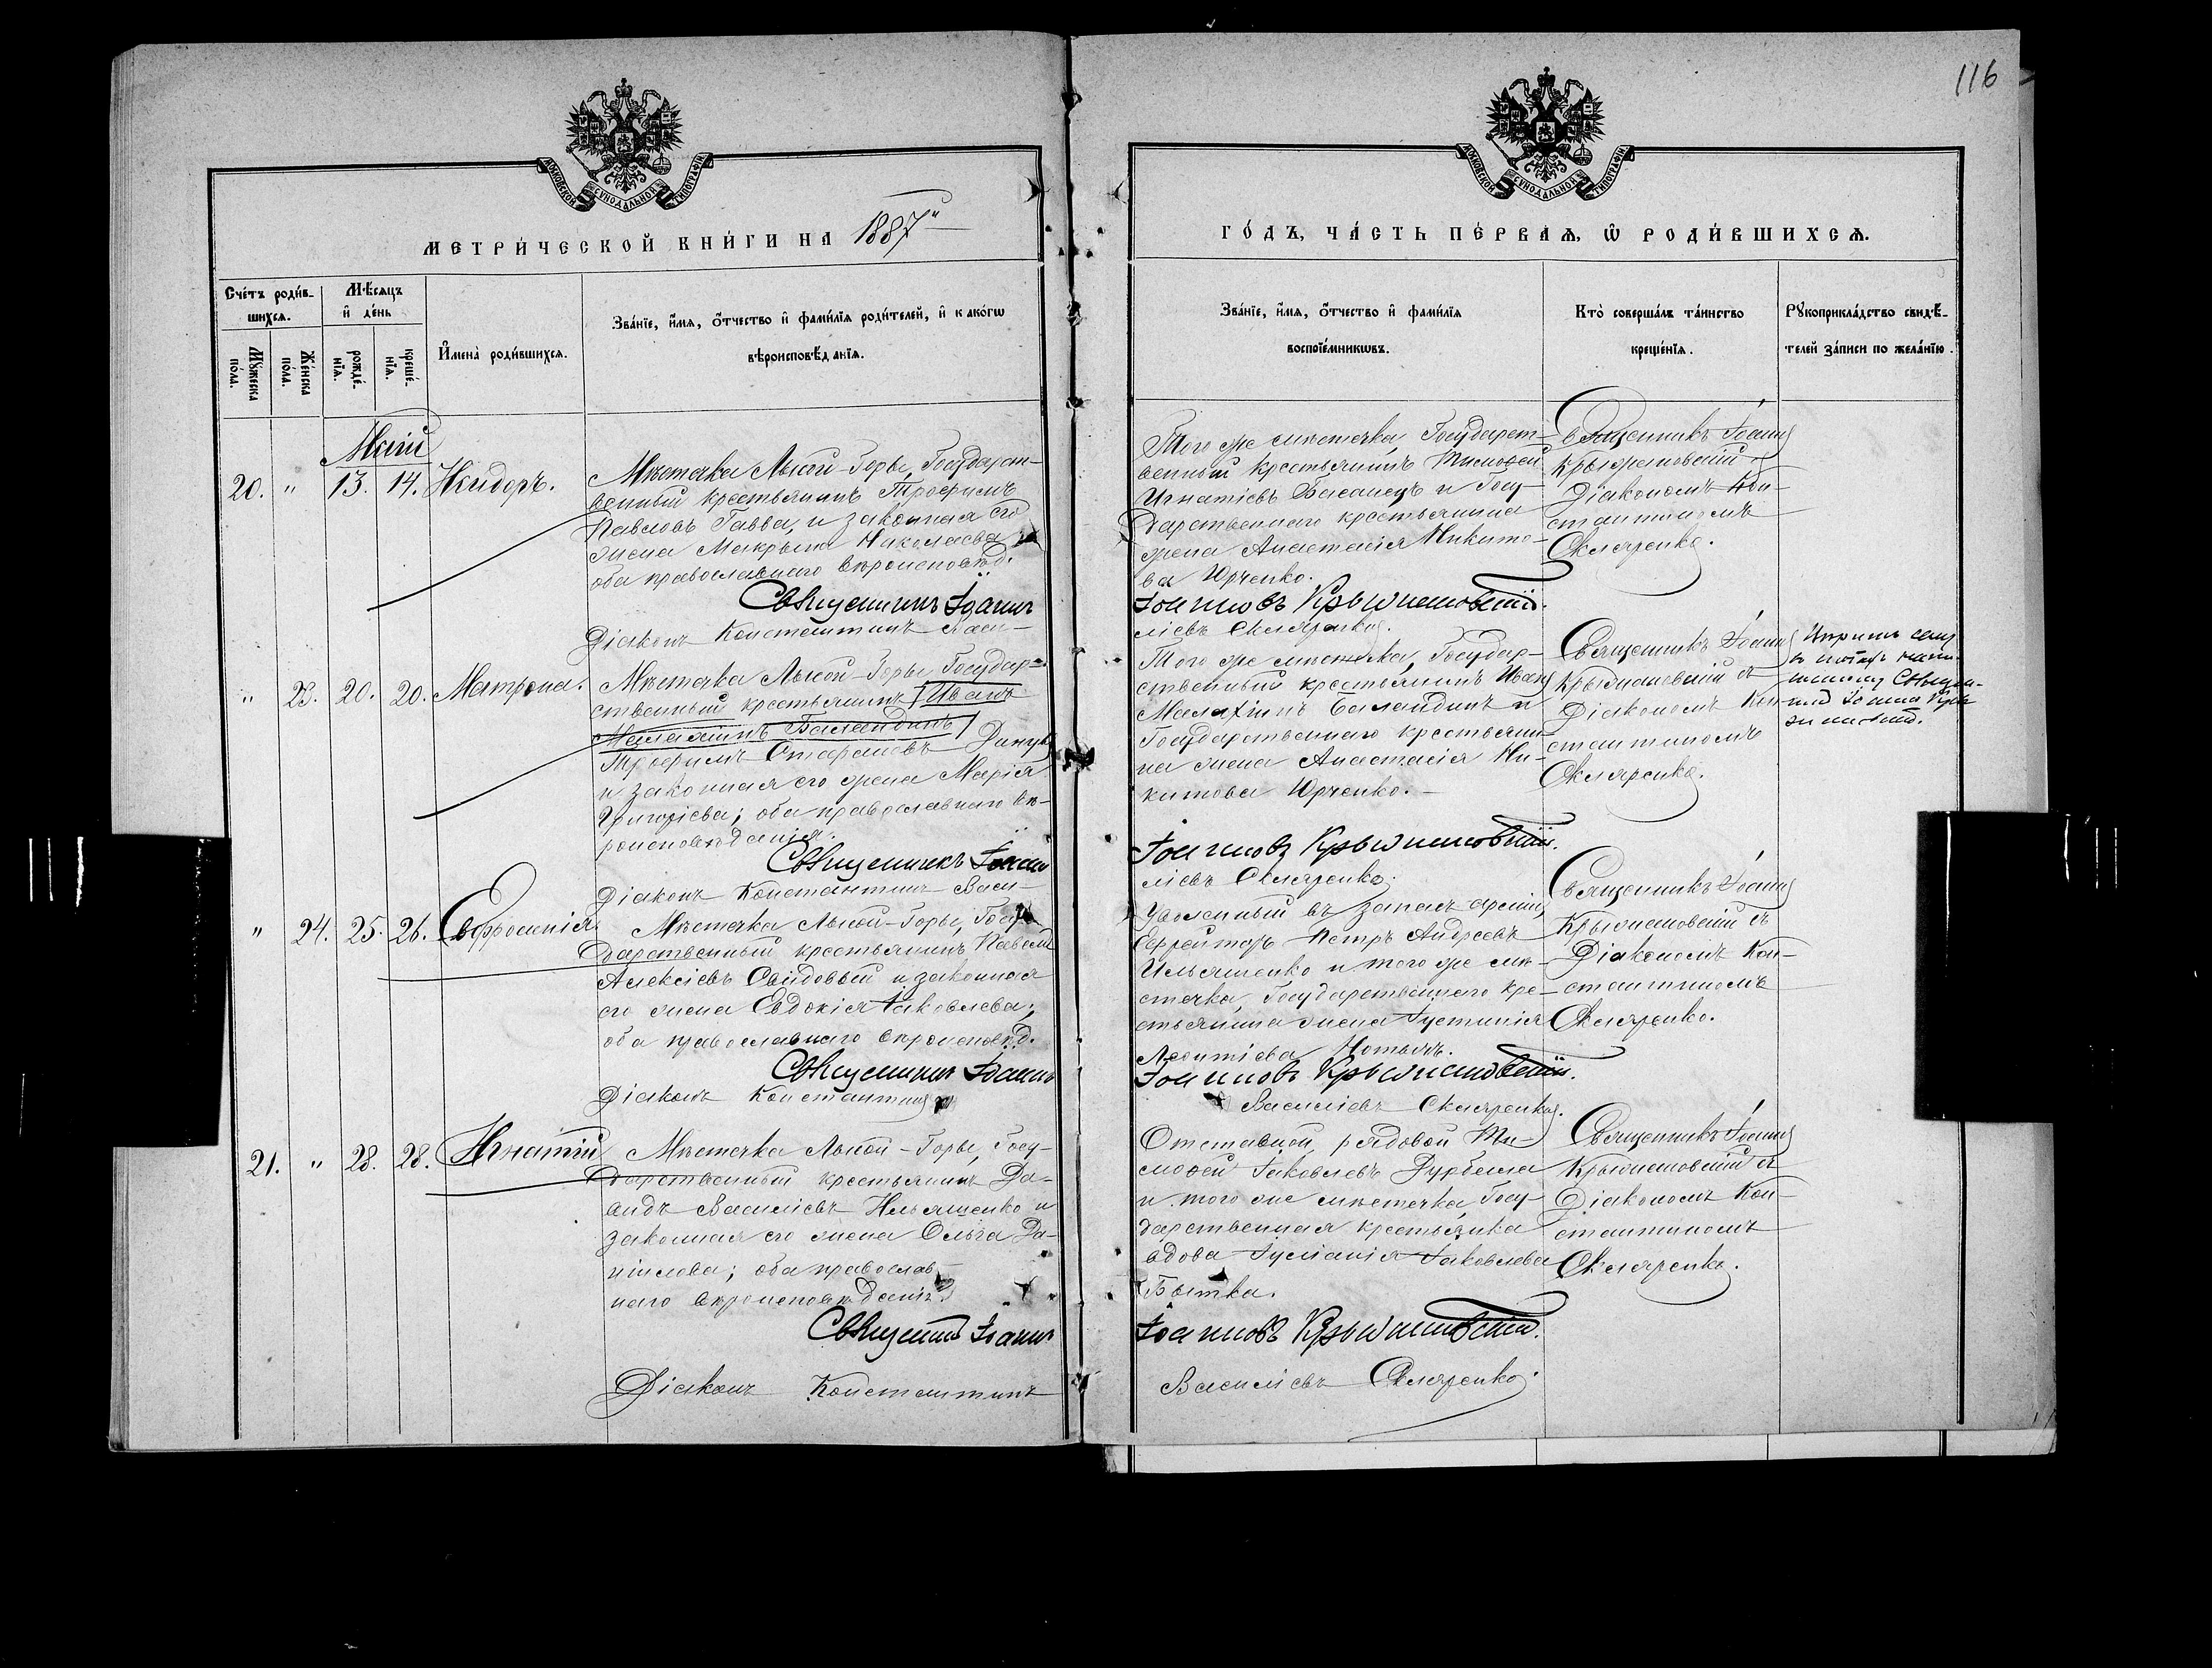 116
МОСКОВСКОЙ СѴНОДАЛЬНОЙ ТИПОГРАФІИ
МОСКОВСКОЙ СѴНОДАЛЬНОЙ ТИПОГРАФІИ
МЕТРИ́ЧЕСКОЙ КНИ́ГИ НА 1887
ГО́ДЪ, ЧА́СТЬ ПЕ́РВАѦ, Ѡ҆ РОДИ́ВШИХСѦ.
Сче́тъ роди́в-
шихсѧ.
Мѣ́сѧцъ
и҆ де́нь
Мꙋ́жеска
по́ла.
Же́нска
по́ла.
рожде́-
нїѧ.
креще́-
нїѧ.
И҆мена̀ роди́вшихсѧ.
Зва́нїе, и҆́мѧ, о҆́тчество и҆ фами́лїѧ роди́телей, и҆ како́гѡ
вѣроисповѣ́данїѧ.
Зва́нїе, и҆́мѧ, о҆́тчество и҆ фами́лїѧ
воспрїе́мникѡвъ.
Кто̀ соверша́лъ та́инство
креще́нїѧ.
Рꙋкоприкла́дство свидѣ́-
телей за́писи по жела́нїю.
Май
20. " 13. 14. Исидоръ.
Мѣстечка Лысой-Горы, Государст-
венный крестьянинъ Трофимъ
Павловъ Гавва, и законная его
жена Макрына Николаева
оба православнаго вѣроисповѣд.
Священникъ Іоаннъ
Діаконъ Константинъ Васи-
Того же мѣстечка, Государст-
венный крестьянинъ Тимофей
Игнатіевъ Басанецъ и Госу-
дарственнаго крестьянина
жена Анастасія Никито-
ва Юрченко.
Іоанновъ Крыжановскій.
ліевъ Скляренко.
Священникъ Іоаннъ
Крыжановскій съ
Діакономъ Кон-
стантиномъ
Скляренко.
" 23. 20. 20. Матрона.
Мѣстечка Лысой-Горы Государ-
ственный крестьянинъ Иванъ
Малахіинъ Баландинъ
Трофимъ Стефановъ
и законная его жена Марія
Григоріева; оба православнаго вѣ-
роисповѣданія.
Священникъ Іоаннъ
Діаконъ Константинъ Васи-
Того же мѣстечка, Государ-
ственный крестьянинъ Иванъ
Малахіинъ Баландинъ и
Государственнаго крестьяни-
на жена Анастасія Ни-
китова Юрченко.
Іоанновъ Крыжановскій.
ліевъ Скляренко.
Священникъ Іоаннъ
Крыжановскій съ
Діакономъ Кон-
стантиномъ
Скляренко.
" 24. 25. 26. Евфросинія.
Мѣстечка Лысой-Горы, Госу-
дарственный крестьянинъ Павелъ
Алексіевъ Свидовый и законная
его жена Евдокія Іаковлева;
оба православнаго вѣроисповѣд.
Священникъ Іоаннъ
Діаконъ Константинъ
Уволенный въ запасъ арміи,
Ефрейторъ Петръ Андреевъ
Ильяшенко и того же мѣ-
стечка, Государственнаго кре-
стьянина жена Іустинія
Леонтіева
Іоанновъ Крыжановскій.
Василіевъ Скляренко.
Священникъ Іоаннъ
Крыжановскій съ
Діакономъ Кон-
стантиномъ
Скляренко.
21. " 28. 28. Игнатій
Мѣстечка Лысой-Горы, Госу-
дарственный крестьянинъ Да-
видъ Василіевъ Ильяшенко и
законная его жена Ольга Да-
ніилова; оба православ-
наго вѣроисповѣданія.
Священникъ Іоаннъ
Діаконъ Константинъ
Отставной рядовой Ти-
мофей Іаковлевъ Дурбела
и того же мѣстечка, Госу-
дарственная крестьянка
вдова Іуліанія Іаковлева
Іоанновъ Крыжановскій.
Василіевъ Скляренко.
Священникъ Іоаннъ
Крыжановскій съ
Діакономъ Кон-
стантиномъ
Скляренко.